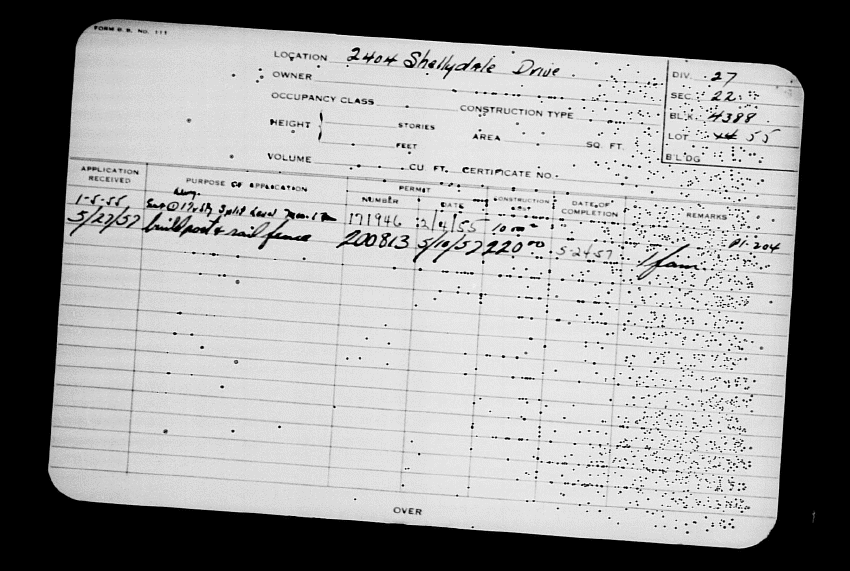 FORM B.B. NO. 111
LOCATION 2404 Shellydale Drive
OWNER
OCCUPANCY CLASS CONSTRUCTION TYPE
HEIGHT STORIES AREA SQ. FT.
FEET
VOLUME CU. FT. CERTIFICATE NO.
DIV. 27
SEC. 22
BLK. 4388
LOT 55
BLDG
APPLICATION RECEIVED PURPOSE OF APPLICATION PERMIT NUMBER DATE CONSTRUCTION COST DATE OF COMPLETION REMARKS
1-5-55 1½ Sty Split Level 171946 2/4/55 P1-204
5/27/57 build post & rail fence 200813 5/10/57 220.00 5-24-57 1 fam
OVER